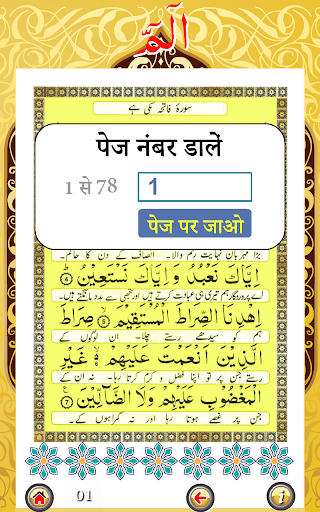 الٓمّٓ
سورۂ فاتحہ مکی ہے
पेज नंबर डालें
1 से 78
1
पेज पर जाओ
بڑا مہربان نہایت رحم والا۔ انصاف کے دن کا حاکم۔
اِيَّاكَ نَعْبُدُ وَ اِيَّاكَ نَسْتَعِيْنُ ﴿۴﴾
اے پروردگار ہم تیری ہی عبادت کرتے ہیں اور تجھی سے مدد مانگتے ہیں۔
اِهْدِنَا الصِّرَاطَ الْمُسْتَقِيْمَ ﴿۵﴾ صِرَاطَ
ہم کو سیدھے رستے چلا۔ ان لوگوں کے
الَّذِيْنَ اَنْعَمْتَ عَلَيْهِمْ ۙ غَيْرِ
رستے جن پر تو اپنا فضل و کرم کرتا رہا۔ نہ ان کے
الْمَغْضُوْبِ عَلَيْهِمْ وَلَا الضَّآلِّيْنَ ﴿۷﴾
جن پر غصے ہوتا رہا اور نہ گمراہوں کے۔
01
i